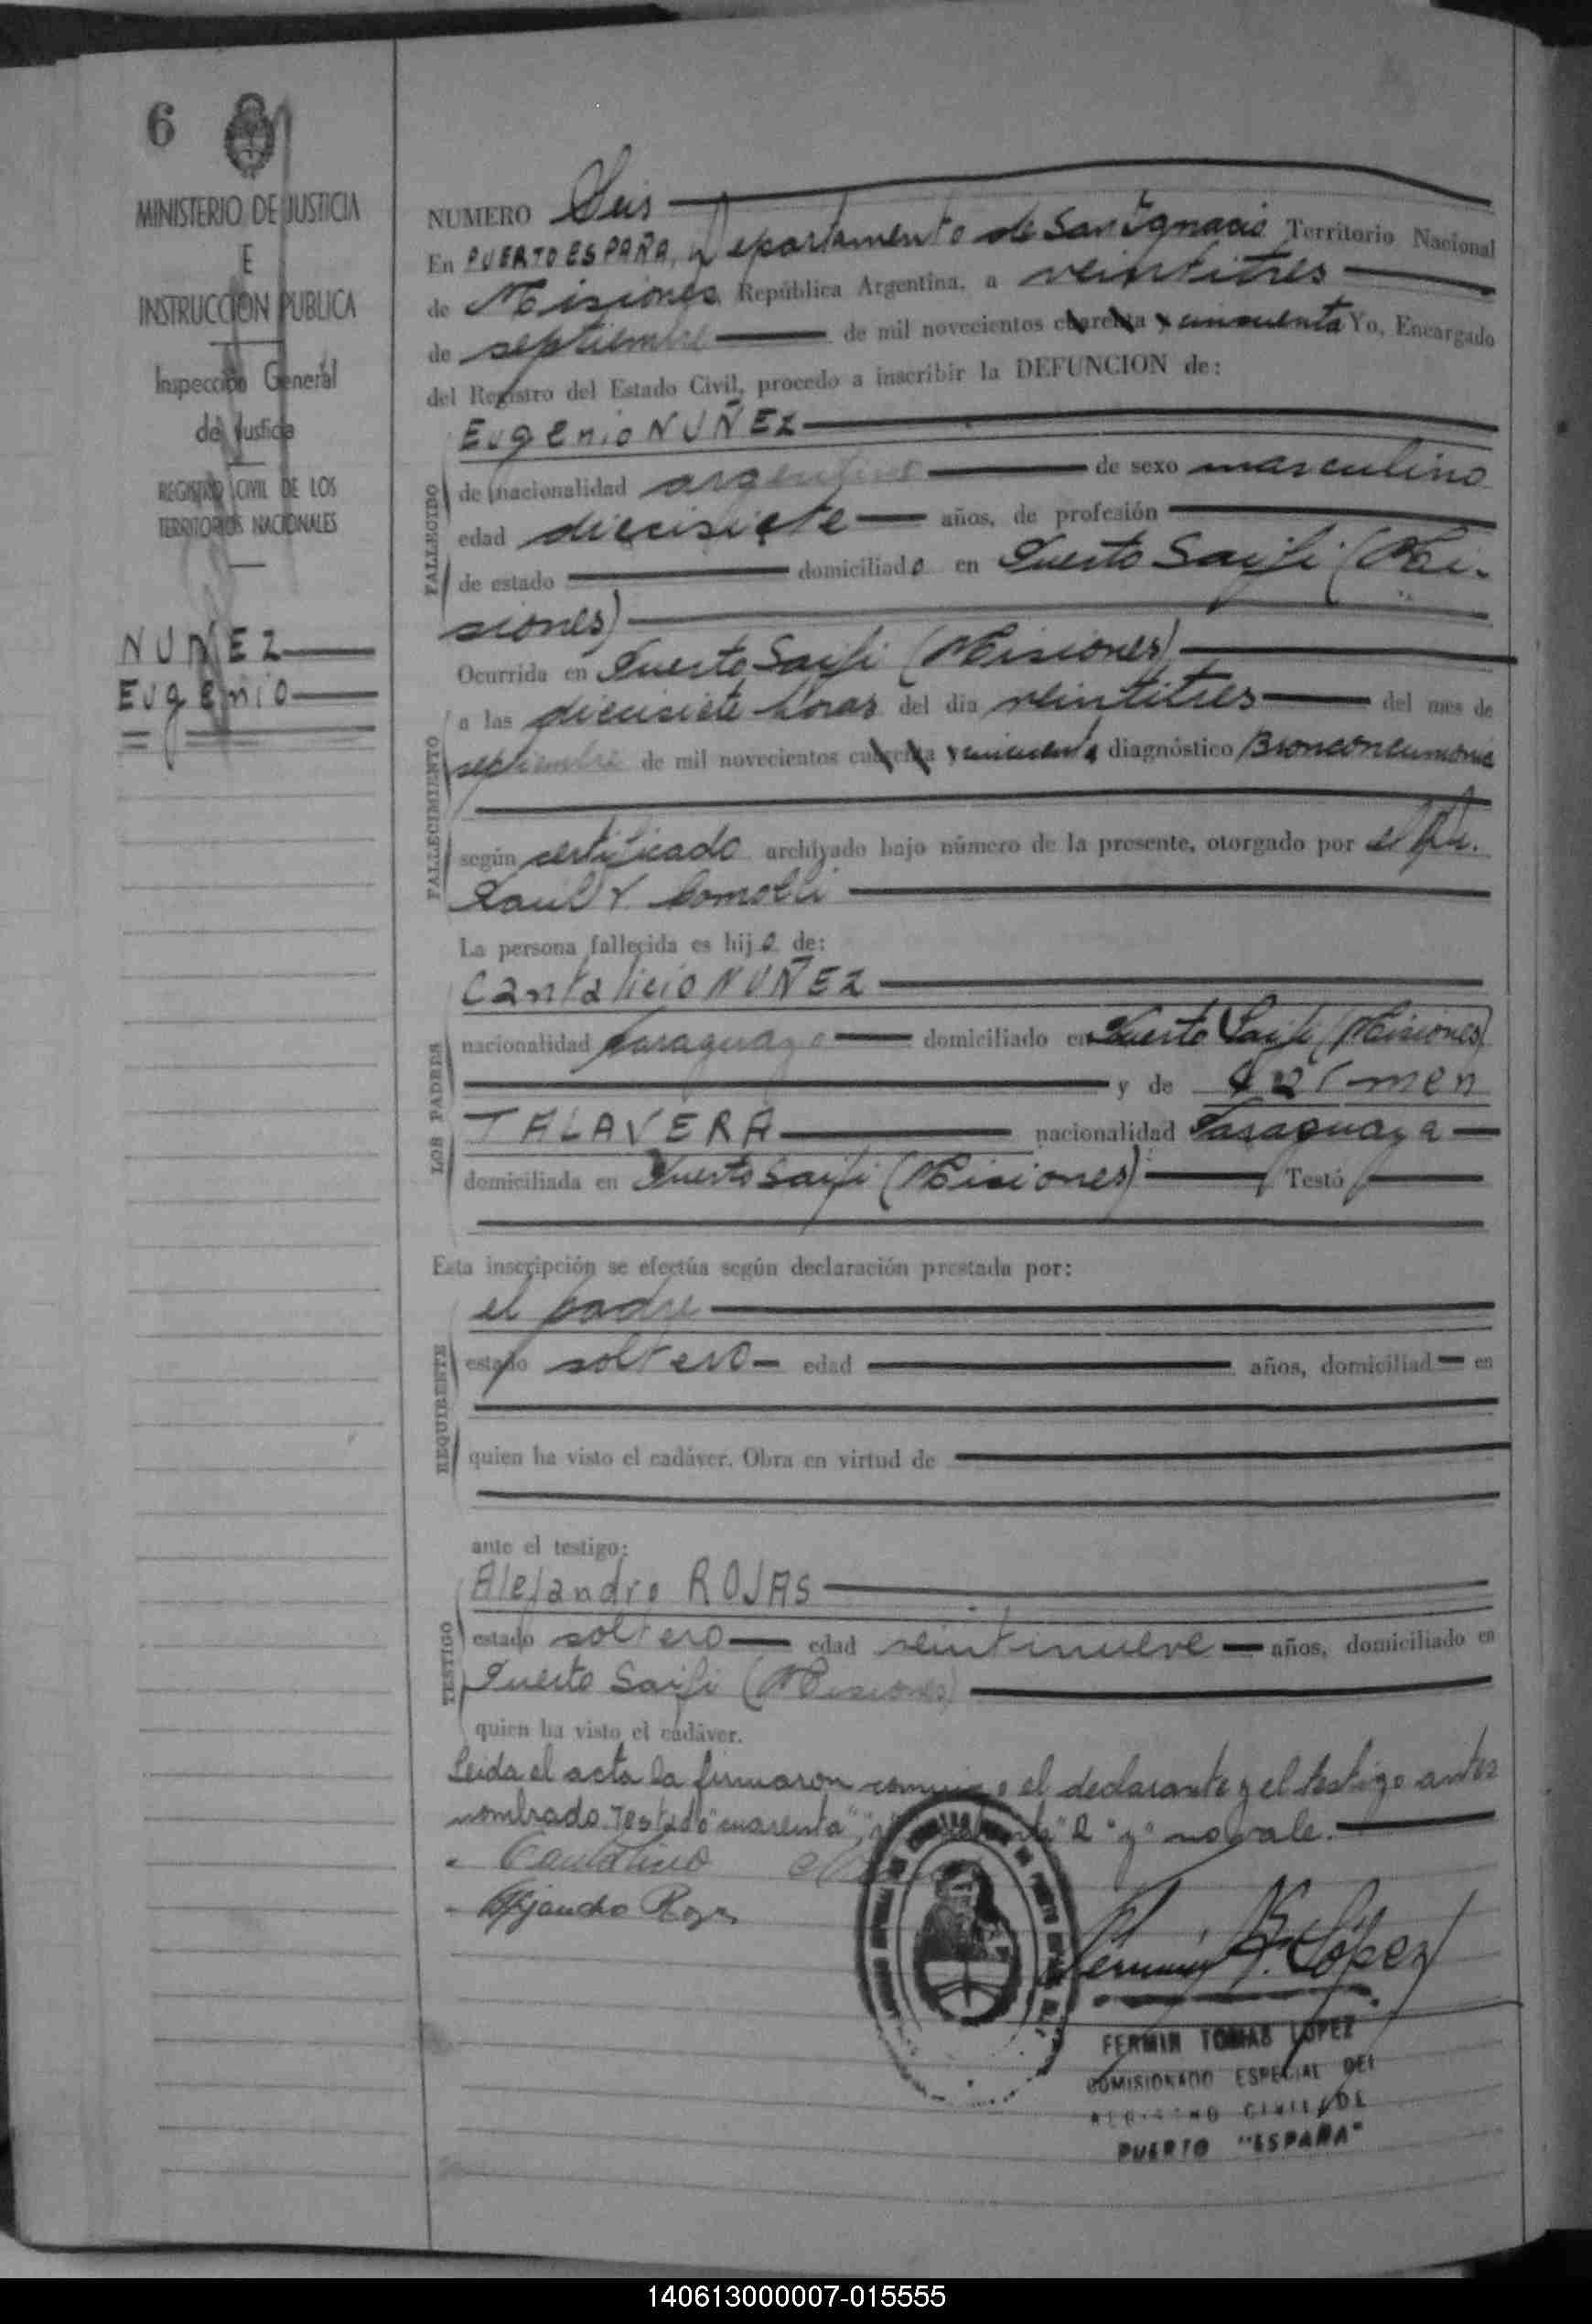 6
MINISTERIO DE JUSTICIA
E
INSTRUCCION PUBLICA
Inspección General
de Justicia
REGISTRO CIVIL DE LOS
TERRITORIOS NACIONALES
NUÑEZ
Eugenio
NUMERO Seis
En PUERTO ESPAÑA, Departamento de San Ignacio Territorio Nacional
de Misiones República Argentina, a veintitres
de septiembre de mil novecientos cuarenta y cincuenta Yo, Encargado
del Registro del Estado Civil, procedo a inscribir la DEFUNCION de:
FALLECIDO
Eugenio NUÑEZ
de nacionalidad argentino de sexo masculino
edad diecisiete años, de profesión
de estado domiciliado en Puerto Saifi (Mi-
siones)
FALLECIMIENTO
Ocurrida en Puerto Saifi (Misiones)
a las diecisiete horas del día veintitres del mes de
septiembre de mil novecientos cuarenta y cincuenta diagnóstico Bronconeumonia
según certificado archivado bajo número de la presente, otorgado por el Dr.
Raul Y. Comolli
LOS PADRES
La persona fallecida es hijo de:
Cantalicio NUÑEZ
nacionalidad paraguayo domiciliado en Puerto Saifi (Misiones)
y de Carmen
TALAVERA nacionalidad Paraguaya
domiciliada en Puerto Saifi (Misiones) Testó
Esta inscripción se efectúa según declaración prestada por:
REQUIRENTE
el padre
estado soltero edad años, domiciliad en
quien ha visto el cadáver. Obra en virtud de
ante el testigo:
TESTIGO
Alejandro ROJAS
estado soltero edad veintinueve años, domiciliado en
Puerto Saifi (Misiones)
quien ha visto el cadáver.
Leida el acta la firmaron conmigo el declarante y el testigo antes
nombrado. Testado "cuarenta", "y" no vale.
Cantalicio
Alejandro Rojas
Fermin T. López
FERMIN TOMAS LOPEZ
COMISIONADO ESPECIAL DEL
REGISTRO CIVIL DE
PUERTO "ESPAÑA"
140613000007-015555